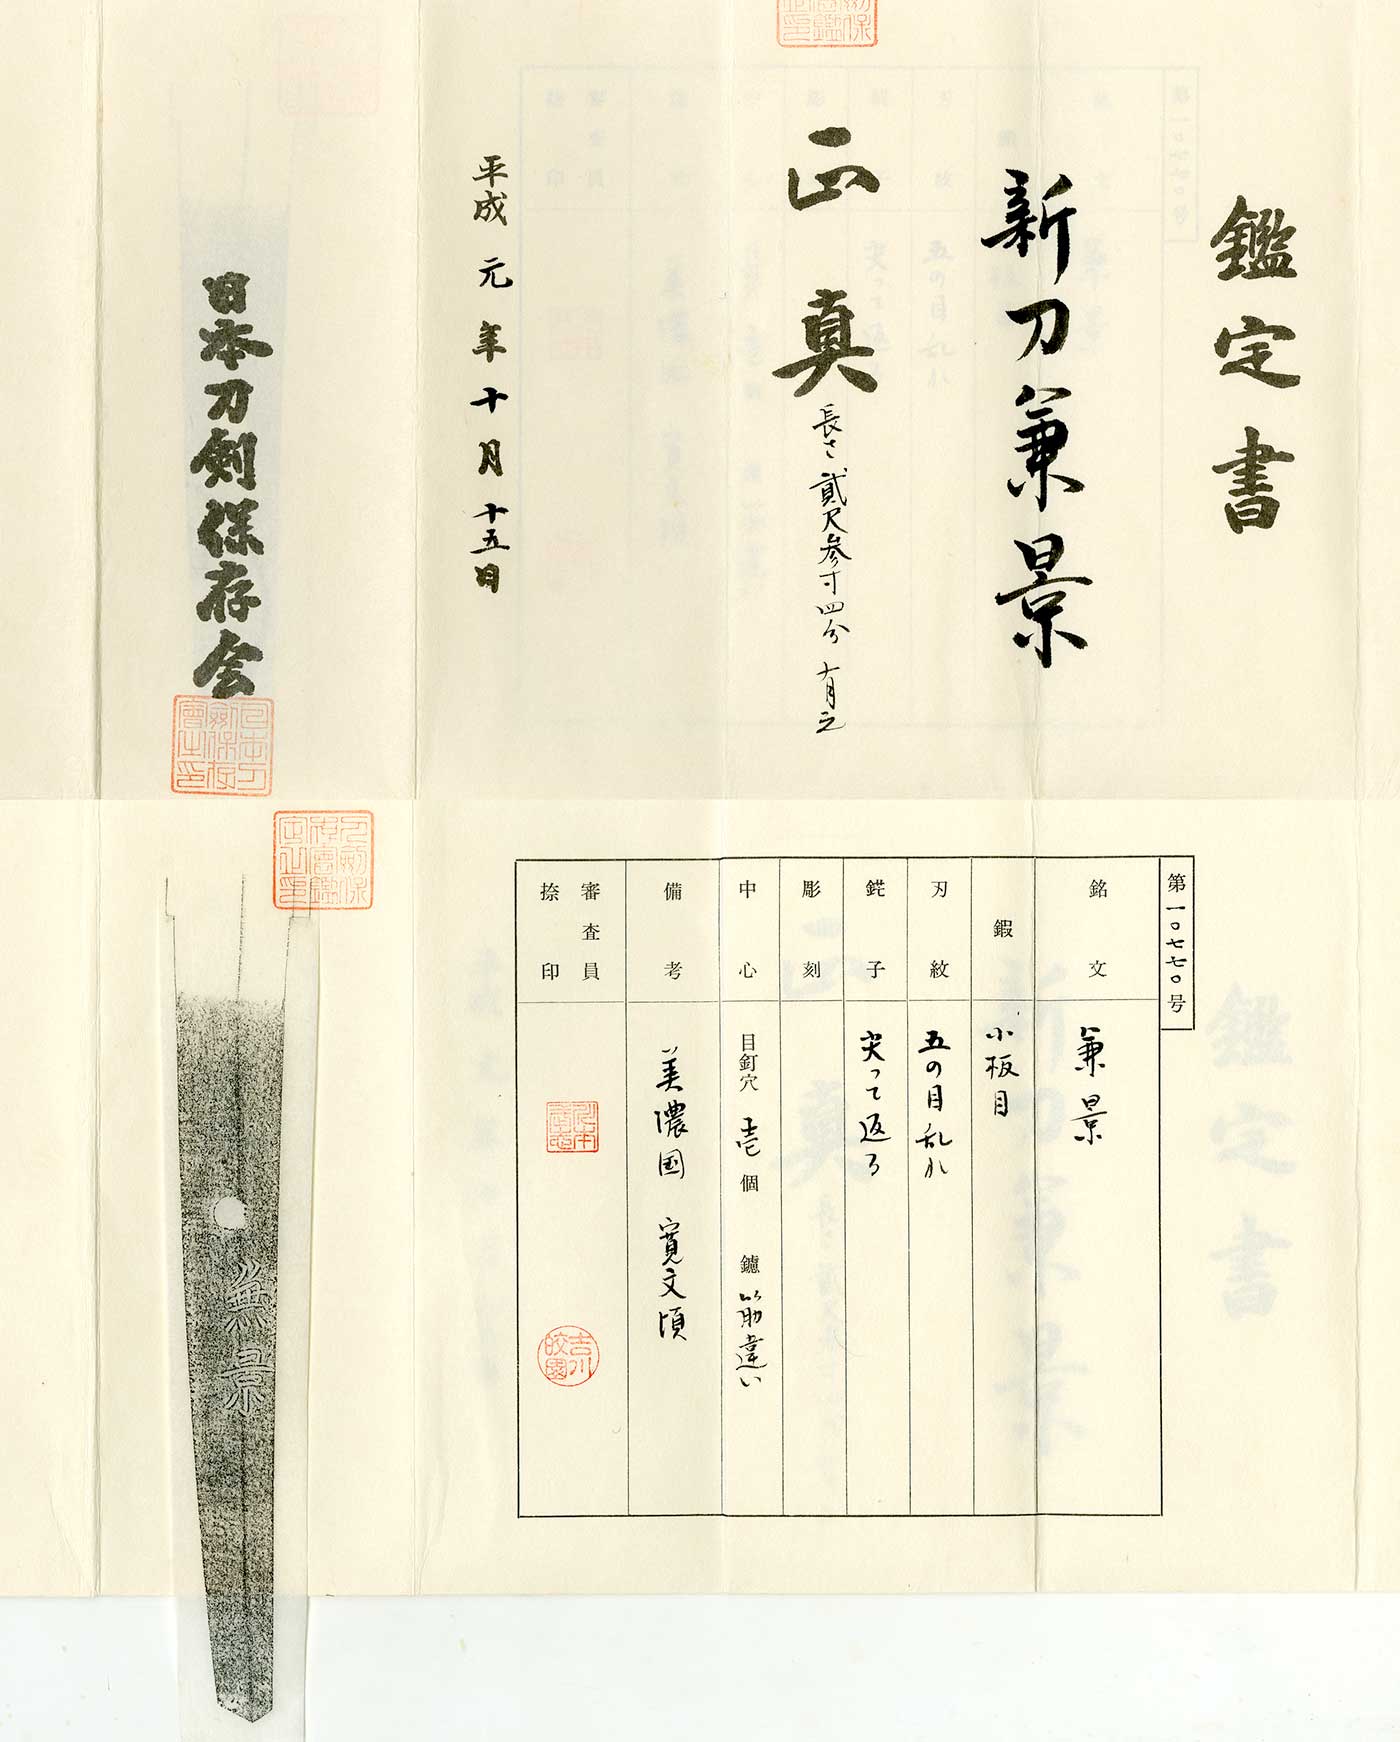 鑑定書
新刀兼景
正真
長さ貳尺参寸四分有之
平成元年十月十五日
日本刀剣保存会
第一〇七七〇号
銘文 兼景
鍜 小板目
刃紋 五の目乱れ
鋩子 尖って返る
彫刻
中心 目釘穴 壱個 鑢 筋違い
備考 美濃国 寛文頃
審査員
捺印
吉川皎園
兼景